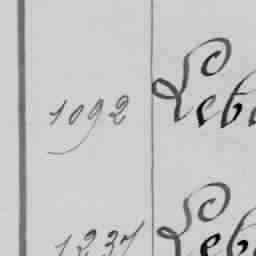 1092 Leb
1237 Leb